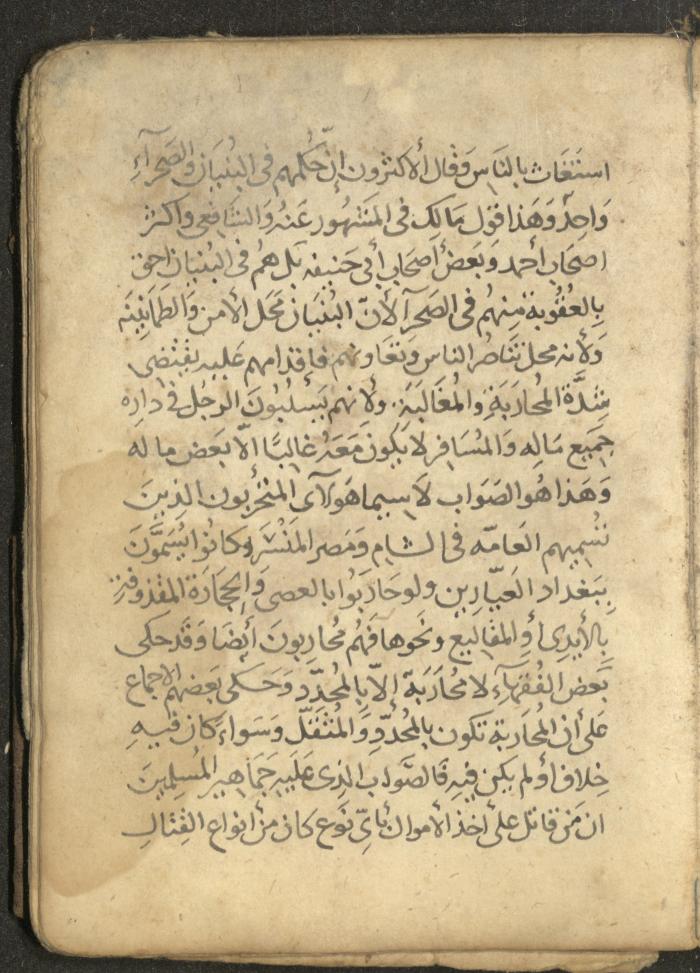 استغاث بالناس وقال الاكثرون انّ حُكمهم فى البُنيَان والصَحرآءِ
وَاحِدٌ وَهَذا قول مَالك فى المَشهُور عَنهُ وَالشافعى واكثر
اصحَاب أحمد وَبَعض أصحَاب أبى حَنيفه بَل هُم فى البُنيَان احق
بِالعُقُوبة مِنهُم فى الصَحرآ لأنّ البُنيَان مَحَل الأمن وَالطمَانِينَه
وَلأنه محل تنَاصُر الناس وَتعَاونهم فاقدامهم عَليه يقتضى
شِدَّة المُحارَبَةِ والمُغَالبَةِ ولأنهم يَسلبُونَ الرجُل فى دَارِه
جَميع مَاله وَالمُسَافِر لا يكون مَعَهُ غالبًا الّا بعَض ماله
وَهَذا هُو الصَوَاب لاسيما هَولآى المتحزبون الذينَ
تسُميهم العَامّه فى الشام وَمصر المَنْسَر وكانوُا يُسَمَّوْنَ
بِبَغداد العَيّارين ولو حَارَبُوا بالعصى وَالحجَارَة المقذوفةِ
بالأيدِى أو المقاليع وَنحوها فَهُم مُحارِبونَ أيضًا وَقد حكى
بَعض الفُقهآءِ لا مُحَارَبَة إلّا بِالمُحدّدِ وَحَكى بَعضهم الاجماع
عَلى أن المُحارَبة تكون بالمُحدّدِ وَالمُثقّل وَسَواءً كان فيهِ
خِلاف أو لم يكن فيهِ فالصَّوَاب الذى عَليه جَمَاهير المُسلمينَ
ان مَن قاتل على أخذ الأموال بأىّ نَوع كان مِن أنواع القِتالِ